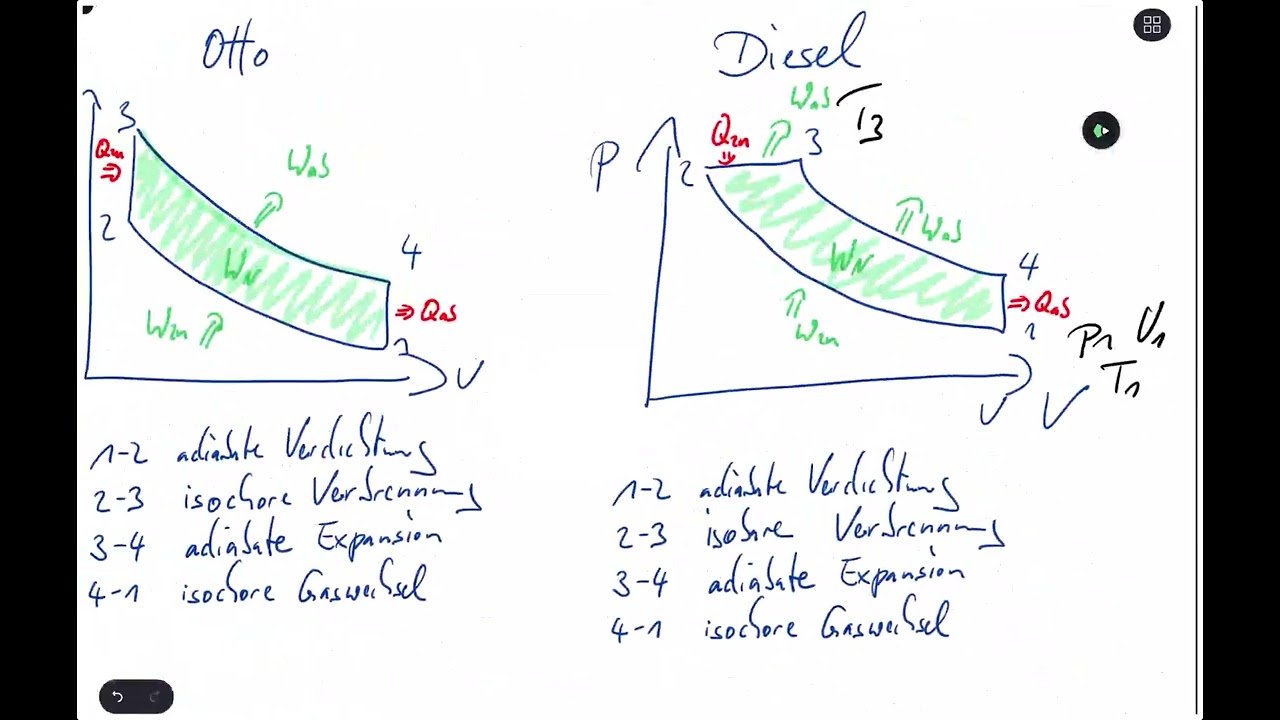 Otto
3
Qzu
Was
2
4
WN
Qas
Wzu
1
V
1-2 adiabate Verdichtung
2-3 isochore Verbrennung
3-4 adiabate Expansion
4-1 isochore Gaswechsel
Diesel
Was
T3
Qzu
3
P
2
Was
WN
4
Qas
Wzu
1
P1 V1
T1
V V
1-2 adiabate Verdichtung
2-3 isobare Verbrennung
3-4 adiabate Expansion
4-1 isochore Gaswechsel